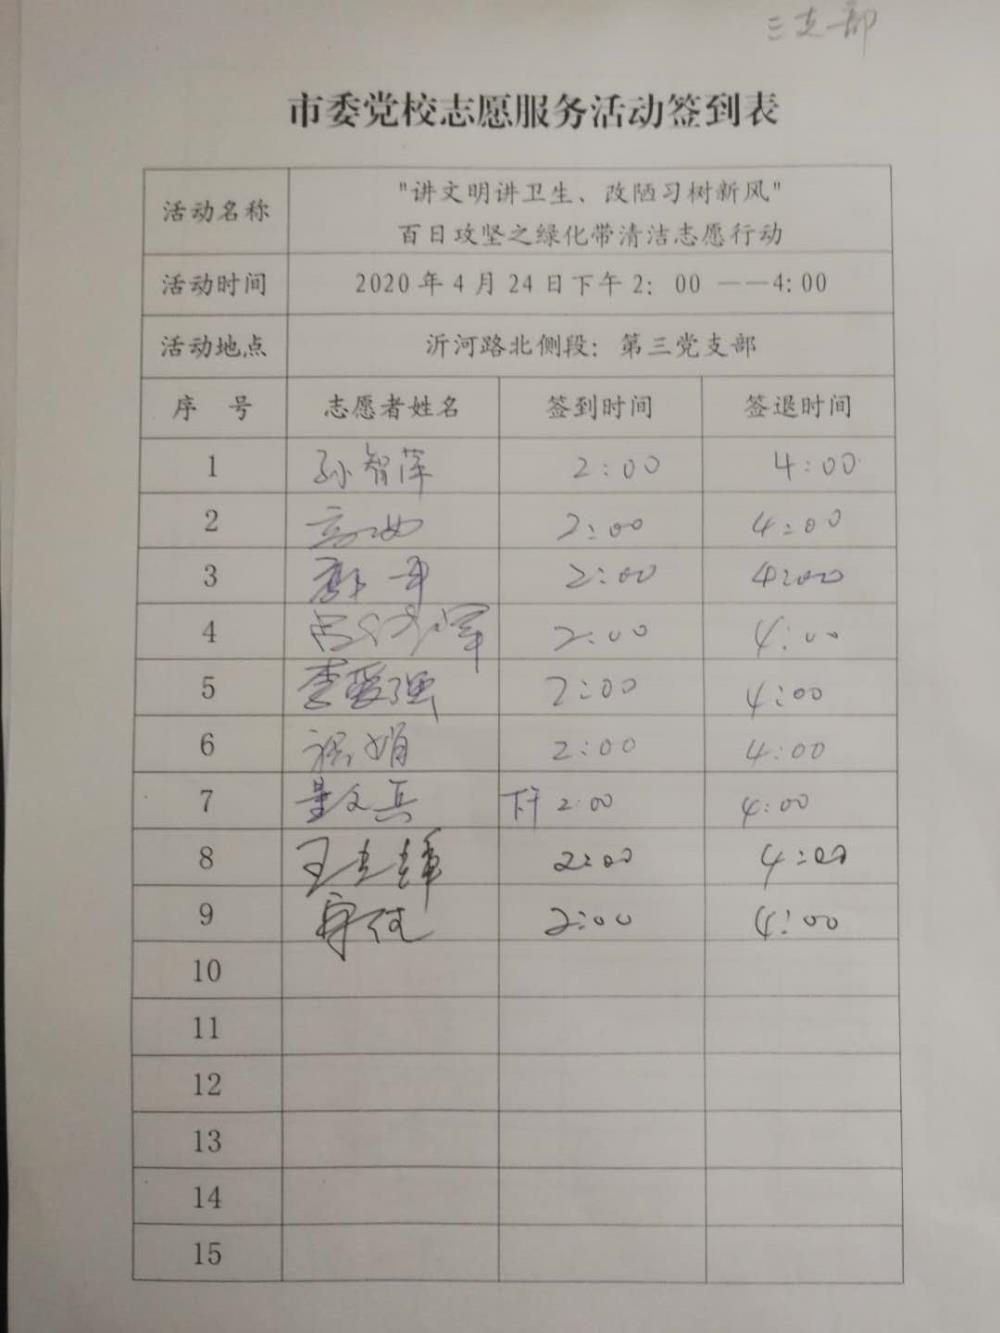 三支部
市委党校志愿服务活动签到表
活动名称 "讲文明讲卫生、改陋习树新风"
百日攻坚之绿化带清洁志愿行动
活动时间 2020年4月24日下午2:00 ——4:00
活动地点 沂河路北侧段：第三党支部
序 号 志愿者姓名 签到时间 签退时间
1 孙智萍 2:00 4:00
2 2:00 4:00
3 2:00 4:00
4 2:00 4:00
5 李爱强 2:00 4:00
6 娟 2:00 4:00
7 董文兵 下午 2:00 4:00
8 王 2:00 4:00
9 2:00 4:00
10
11
12
13
14
15